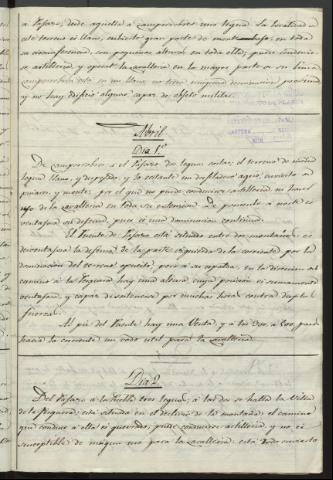 a Pajazo, desde aquella a Camporrobres una legua. La localidad de
este terreno es llano, cubierto gran parte de monte bajo, en toda
su circunferencia, con pequeñas alturas en toda ella; puede conducirse
artilleria, y operar la caballeria en la mayor parte de su linea
Camporrobres está en un llano, no tiene ninguna dominacion proxima
y no hay edificio alguno capaz de objeto militar.
Abril
Dia 1.º
De Camporrobres a el Pajazo dos leguas cortas; el terreno de
legua llano, y despejado, y lo restante en
pinares, y monte; por el que no puede conducirse artilleria ni hacer
uso de la caballeria en toda su extension. De poniente a norte es
ventajosa su defensa, pues es una dominacion continua.
El Puente de Pajazo está situado entre dos montañas; es
desventajosa la defensa de la parte izquierda de la corriente por la
dominacion del terreno opuesto, pero a su espalda en la direccion al
camino a la Pesquera hay una altura cuya posicion es sumamente
ventajosa, y capaz de sostenerse por muchas horas contra duplas
fuerzas.
Al pie del Puente hay una Venta, y a tiro de
hacia la corriente un vado util para la caballeria.
Dia 2.
Del Pajazo a tres leguas; a las dos se halla la Villa
de la Pesquera: está situada en el declivio de la montaña; el camino
que conduce a ella es quebrado; puede conducirse artilleria, y no es
susceptible de ningun uso para la caballeria: está todo cubierto